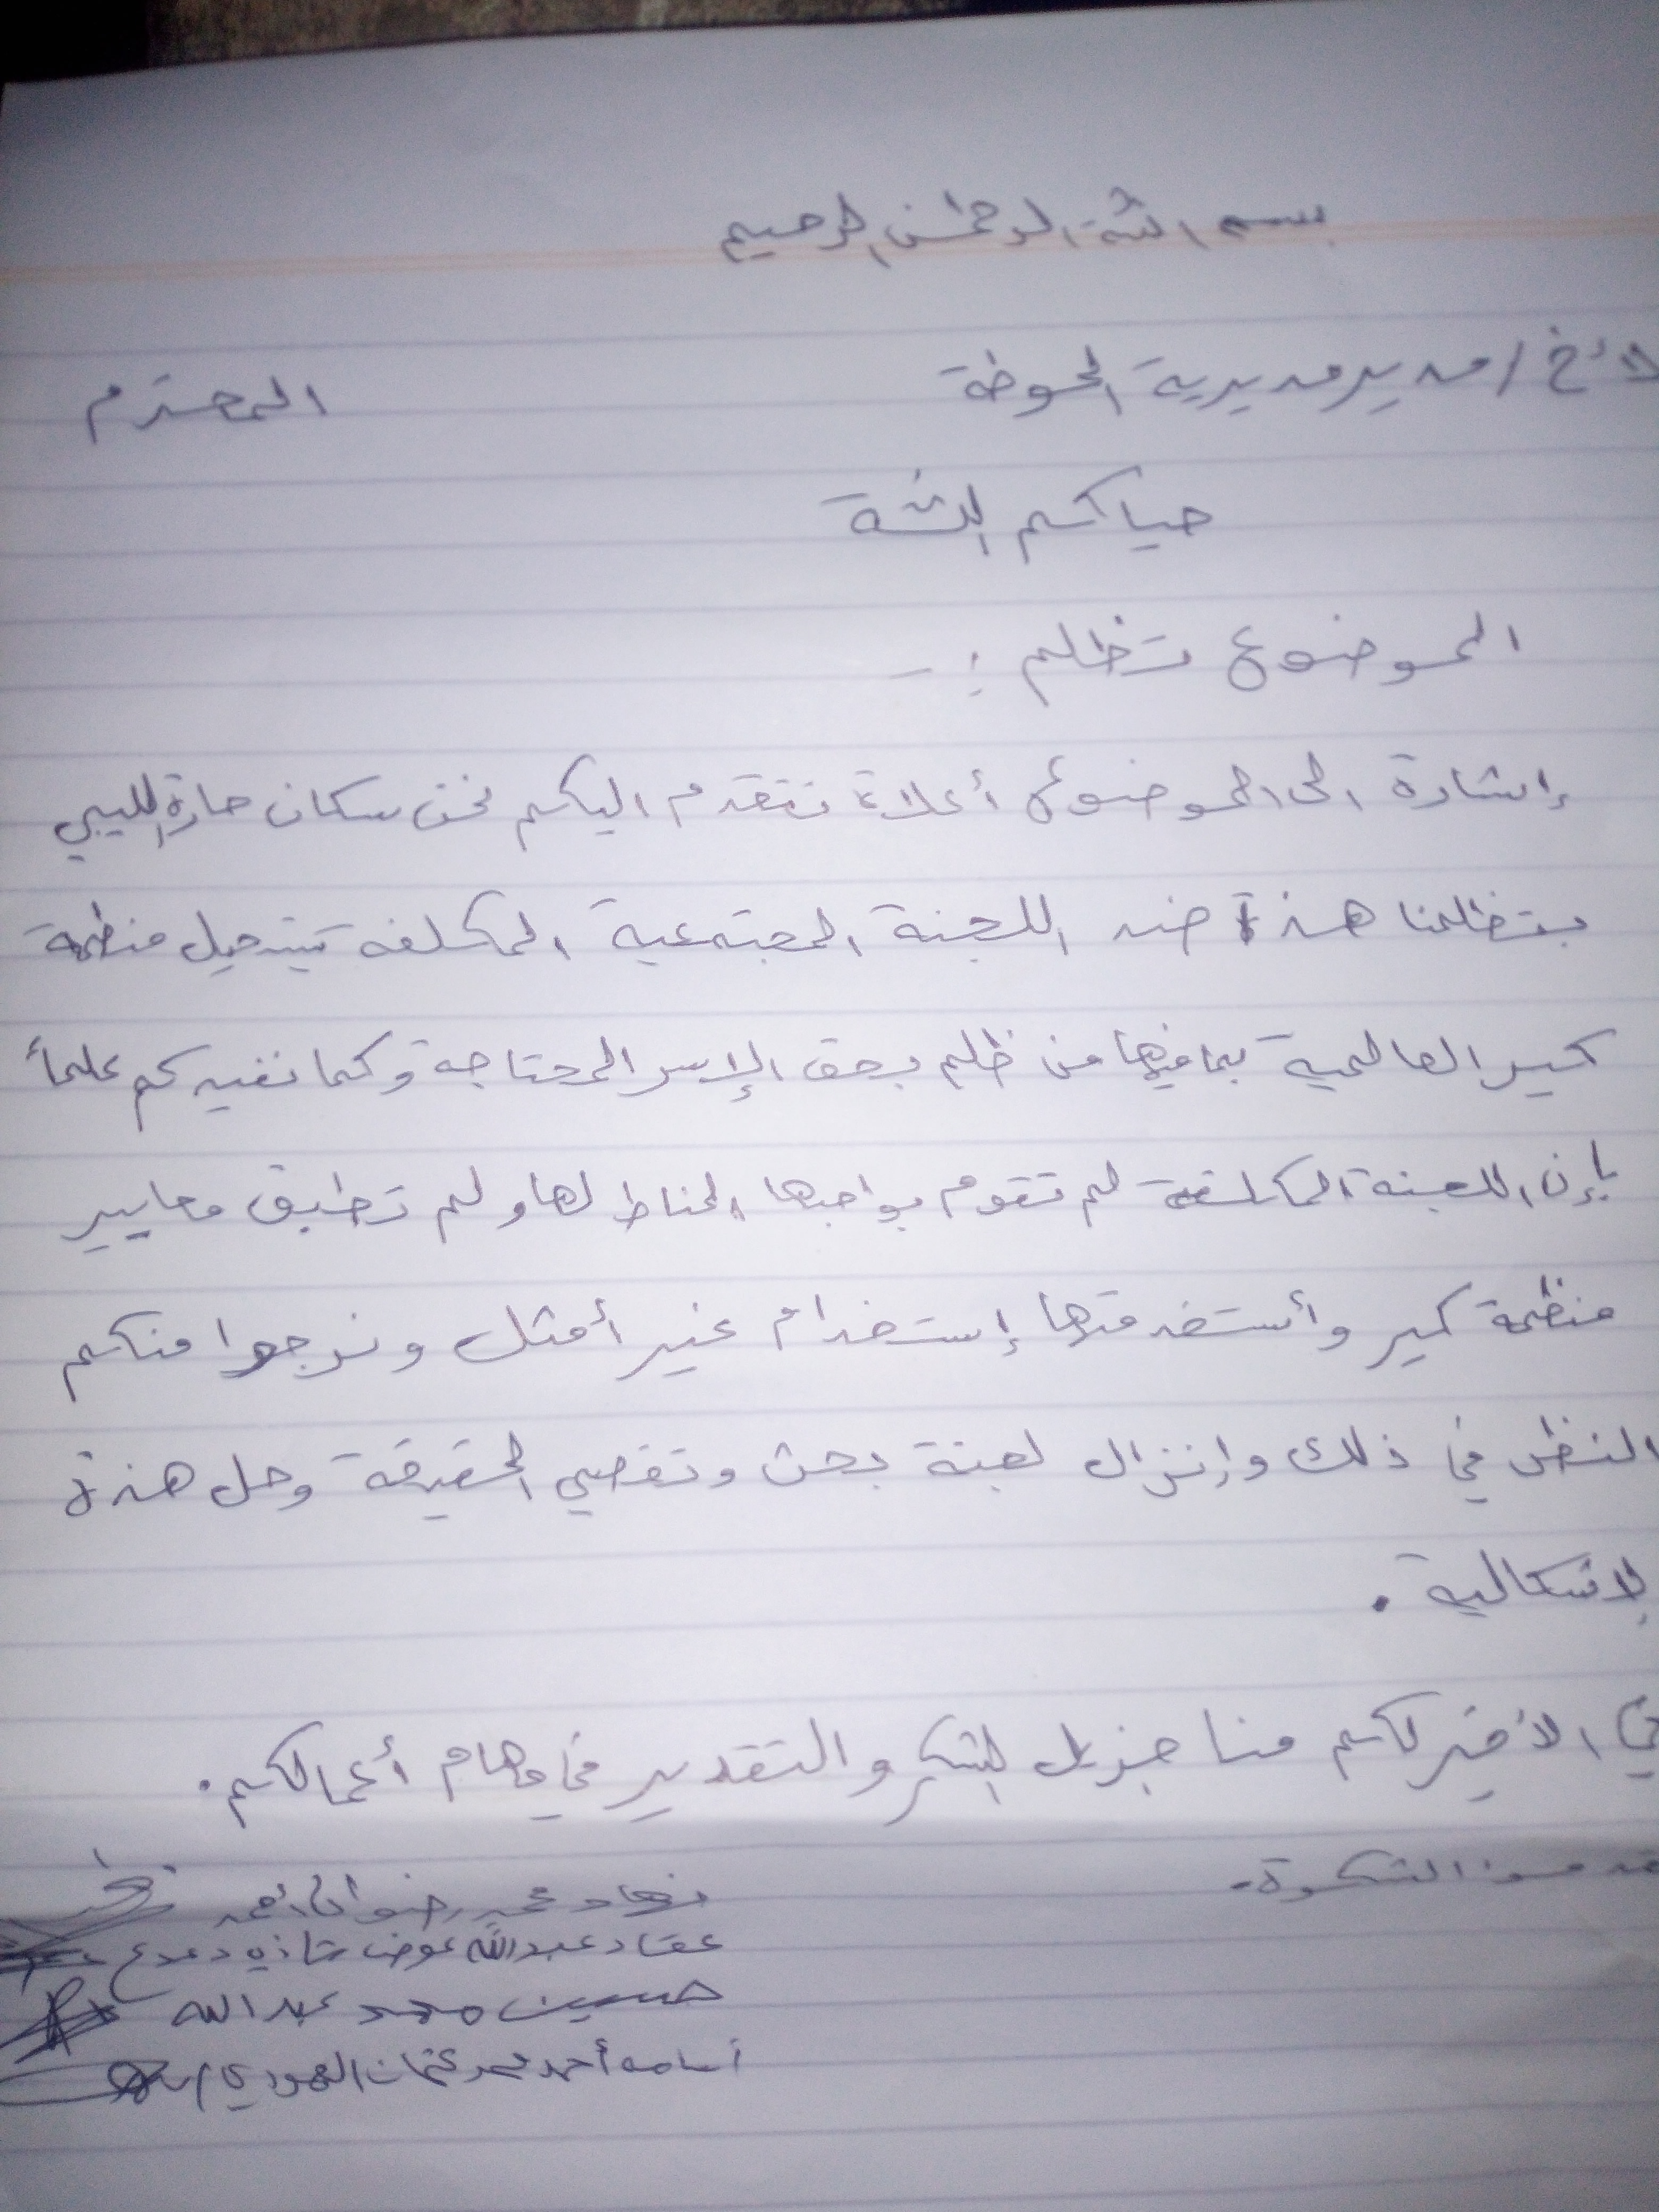 بسم الله الرحمن الرحيم
لأخ / مدير مديرية الحوطة المحترم
حياكم الله
الموضوع تظلم :-
إشارة الى الموضوع أعلاة نتقدم اليكم نحن سكان حارة الليبي
بتظلمنا هذة ضد اللجنة المجتمعية المكلفه بتسجيل منظمة
كير العالمية بمافيها من ظلم بحق الإسر المحتاجة وكما نفيدكم علماً
بإن اللجنة المكلفة لم تقوم بواجبها المناط لها ولم تطبق معايير
منظمة كير وأستخدمتها إستخدام غير أمثل ونرجوا منكم
النظر في ذلك وإنزال لجنة بحث وتقصي الحقيقة وحل هذة
لإشكالية .
في الأخير لكم منا جزيل الشكر والتقدير في مهام أعمالكم .
مقدمون الشكوة -
نهاد محمد رضوان احمد
عبدالله عوض
حسين محمد عبدالله
أسامه أحمد محمد عثمان